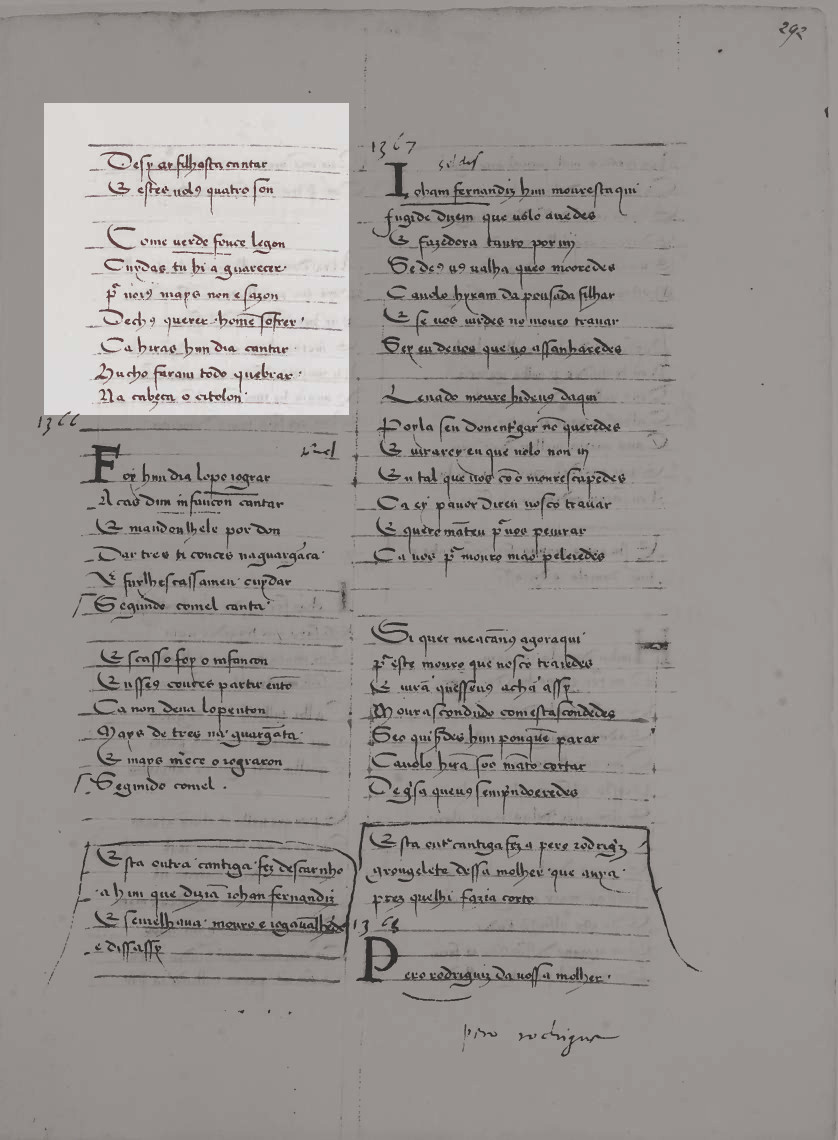 292
Desp ar filhasta cantar
E estes uolꝯ quatro son
Come uerde fouce legon
Cuydas tu hi a guarecer
ꝑ uoꝯ mays non e sazon
Dechꝯ querer home sofrer
Ca hiras hun dia cantar
Hu cho faram todo quebrar
Na cabeça o citolon
1366
Foy hun dia lopo iograr
A cas dun infançon cantar
E mandoulhele por don
Dar tres couces na guarganta
E fuylhescassameu cuydar
Segundo comel canta
Escasso foy o infançon
E usseꝯ couces partir ento
Ca non deua lopenton
Mays de tres na guarganta
E mays mece o iograron
Segundo comel
Esta outra cantiga fez descarnho
a hun que dizia iohan fernandiz
E semelhaua mouro e iogaualhe
e diss assy
1367
Ioham fernandiz hun mouresta qui
fugide dizem que uolo auedes
E fazedora tanto por mj
Se deꝯ uꝯ ualha queo moredes
Ca uolo hyram da pousada filhar
E se uos uirdes no mouro trauar
Sey eu deuos que uo assanharedes
Leuado mouro hideuꝯ daqui
Poyla seu don entgar no queredes
E uirarey eu que uolo non uj
En tal que uos co o mourescapedes
Ca ey pauor diren uosco trauar
E quero mateu ꝑ uos peiurar
Ca uos ꝑ mouro mao peleiedes
Si quer meacanꝯ agoraqui
ꝑ este mouro que uosco traiedes
E uira quesseuꝯ acha assy
Mourascondudo comestascondedes
Seo quisedes hun pouque parar
Ca uolo hira soo mato cortar
De gsa queuꝯ sempndoeredes
Esta outᵃ cantiga fez a pero rodrigz
grongelete dessa molher que auya
prez quelhi fazia corto
1368
Pero rodriguiz da uossa molher
pero rodrigue